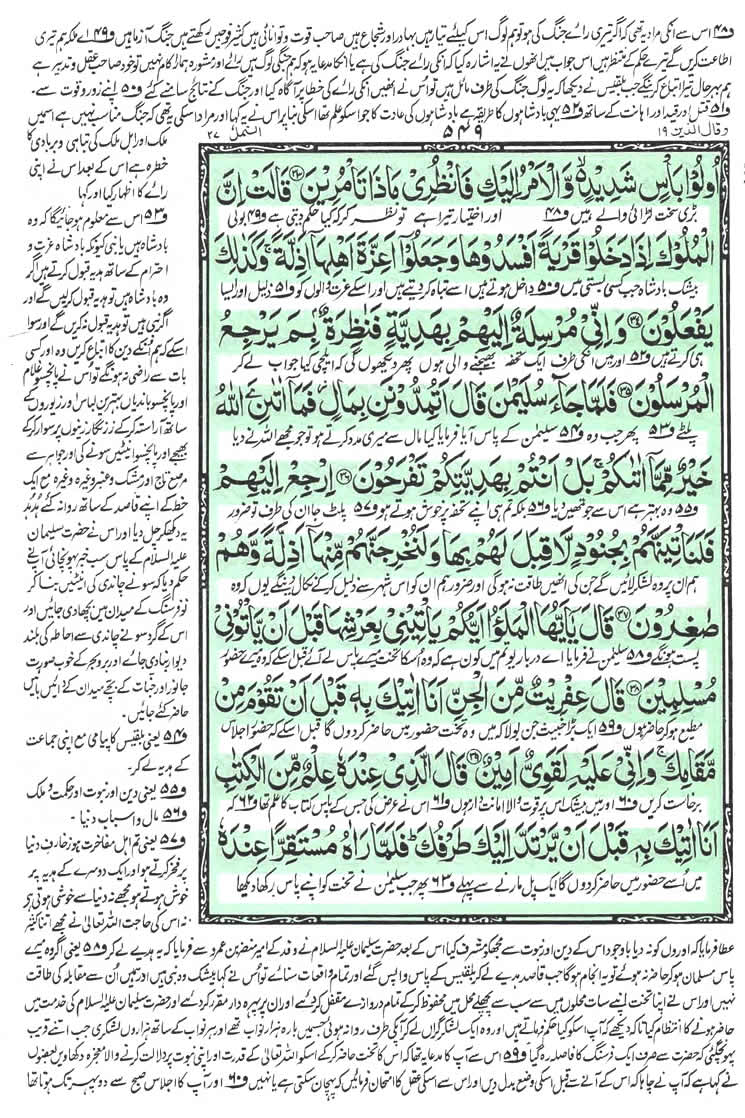 و۴۸ اس سے انکی مراد یہ تھی کہ اگر تیری رائے جنگ کی ہو تو ہم لوگ اس کیلئے تیار ہیں بہادر اور شجاع ہیں صاحب قوت و توانائی ہیں کثیر فوجیں رکھتے ہیں جنگ آزما ہیں و۴۹ اے ملکہ ہم تیری
اطاعت کریں گے تیرے حکم کے منتظر ہیں اس جواب میں انھوں نے یہ اشارہ کیا کہ انکی رائے جنگ کی ہے یا انکا مدعا یہ ہو کہ ہم جنگی لوگ ہیں رائے اور مشورہ ہمارا کام نہیں تو خود صاحب عقل و تدبیر ہے
ہم بہرحال تیرا اتباع کرینگے جب بلقیس نے دیکھا کہ یہ لوگ جنگ کی طرف مائل ہیں تو اس نے انھیں انکی رائے کی خطا پر آگاہ کیا اور جنگ کے نتائج سامنے کئے و۵۰ اپنے زور و قوت سے۔
و۵۱ قتل اور قید اور اہانت کے ساتھ و۵۲ یہی بادشاہوں کا طریقہ ہے بادشاہوں کی عادت کا جو اسکو علم تھا اسکی بنا پر اس نے یہ کہا اور مراد اسکی یہ تھی کہ جنگ مناسب نہیں ہے اسمیں
وقال الذین ۱۹
۵۴۹
النمل ۲۷
ملک اور اہل ملک کی تباہی و بربادی کا
خطرہ ہے اس کے بعد اس نے اپنی
رائے کا اظہار کیا اور کہا
و۵۳ اس سے معلوم ہو جائیگا کہ وہ
بادشاہ ہیں یا نبی کیونکہ بادشاہ عزت و
احترام کے ساتھ ہدیہ قبول کرتے ہیں اگر
وہ بادشاہ ہیں تو ہدیہ قبول کرلیں گے اور
اگر نبی ہیں تو ہدیہ قبول نہ کریں گے اور سوا
اسکے کہ ہم انکے دین کا اتباع کریں وہ اور کسی
بات سے راضی نہ ہونگے تو اس نے پانچسو غلام
اور پانچسو باندیاں بہترین لباس اور زیوروں کے
ساتھ آراستہ کر کے زرنگار زینوں پر سوار کر کے
بھیجے اور پانچسو اینٹیں سونے کی اور جواہر سے
مرصع تاج اور مشک و عنبر وغیرہ وغیرہ مع ایک
خط کے اپنے قاصد کے ساتھ روانہ کئے ہدہد
یہ دیکھ کر چل دیا اور اس نے حضرت سلیمان
علیہ السلام کے پاس سب خبر پہونچائی آپنے
حکم دیا کہ سونے چاندی کی اینٹیں بنا کر
نو فرسنگ کے میدان میں بچھادی جائیں اور
اس کے گرد سونے چاندی سے احاطہ کی بلند
دیوار بنادی جائے اور بر و بحر کے خوب صورت
جانور اور جنات کے بچے میدان کے دائیں بائیں
حاضر کئے جائیں۔
و۵۴ یعنی بلقیس کا پیامی مع اپنی جماعت
کے ہدیہ لے کر۔
و۵۵ یعنی دین اور نبوت اور حکمت و ملک
و۵۶ مال و اسباب دنیا۔
و۵۷ یعنی تم اہل مفاخرت ہو زخارف دنیا
پر فخر کرتے ہو اور ایک دوسرے کے ہدیہ پر
خوش ہوتے ہو مجھے نہ دنیا سے خوشی ہوتی ہے
نہ اس کی حاجت اللہ تعالیٰ نے مجھے اتنا کثیر
اُولُوْا بَاْسٍ شَدِيْدٍ ۙ وَّالْاَمْرُ اِلَيْكِ فَانْظُرِيْ مَاذَا تَاْمُرِيْنَ ﴿۳۳﴾ قَالَتْ اِنَّ
بڑی سخت لڑائی والے ہیں و۴۸ اور اختیار تیرا ہے تو نظر کر کہ کیا حکم دیتی ہے و۴۹ بولی
الْمُلُوْكَ اِذَا دَخَلُوْا قَرْيَةً اَفْسَدُوْهَا وَجَعَلُوْٓا اَعِزَّةَ اَهْلِهَآ اَذِلَّةً ۚ وَكَذٰلِكَ
بیشک بادشاہ جب کسی بستی میں و۵۰ داخل ہوتے ہیں اسے تباہ کر دیتے ہیں اور اسکے عزت والوں کو و۵۱ ذلیل اور ایسا
يَفْعَلُوْنَ ﴿۳۴﴾ وَاِنِّيْ مُرْسِلَةٌ اِلَيْهِمْ بِهَدِيَّةٍ فَنٰظِرَةٌۢ بِمَ يَرْجِعُ
ہی کرتے ہیں و۵۲ اور میں انکی طرف ایک تحفہ بھیجنے والی ہوں پھر دیکھوں گی کہ ایلچی کیا جواب لے کر
الْمُرْسَلُوْنَ ﴿۳۵﴾ فَلَمَّا جَآءَ سُلَيْمٰنَ قَالَ اَتُمِدُّوْنَنِ بِمَالٍ ۡ فَمَآ اٰتٰىنِۦَ اللّٰهُ
پلٹے و۵۳ پھر جب وہ و۵۴ سلیمٰن کے پاس آیا فرمایا کیا مال سے میری مدد کرتے ہو تو جو مجھے اللہ نے دیا
خَيْرٌ مِّمَّآ اٰتٰىكُمْ ۚ بَلْ اَنْتُمْ بِهَدِيَّتِكُمْ تَفْرَحُوْنَ ﴿۳۶﴾ اِرْجِعْ اِلَيْهِمْ
و۵۵ وہ بہتر ہے اس سے جو تمھیں دیا و۵۶ بلکہ تمہی اپنے تحفہ پر خوش ہوتے ہو و۵۷ پلٹ جا ان کی طرف تو ضرور
فَلَنَاْتِيَنَّهُمْ بِجُنُوْدٍ لَّا قِبَلَ لَهُمْ بِهَا وَلَنُخْرِجَنَّهُمْ مِّنْهَآ اَذِلَّةً وَّهُمْ
ہم ان پر وہ لشکر لائیں گے جن کی انھیں طاقت نہ ہوگی اور ضرور ہم ان کو اس شہر سے ذلیل کر کے نکال دینگے یوں کہ وہ
صٰغِرُوْنَ ﴿۳۷﴾ قَالَ يٰٓاَيُّهَا الْمَلَؤُا اَيُّكُمْ يَاْتِيْنِيْ بِعَرْشِهَا قَبْلَ اَنْ يَّاْتُوْنِيْ
پست ہونگے و۵۸ سلیمٰن نے فرمایا اے درباریو تم میں کون ہے کہ وہ اسکا تخت میرے پاس لے آئے قبل اسکے کہ وہ میرے حضور
مُسْلِمِيْنَ ﴿۳۸﴾ قَالَ عِفْرِيْتٌ مِّنَ الْجِنِّ اَنَا اٰتِيْكَ بِهٖ قَبْلَ اَنْ تَقُوْمَ مِنْ
مطیع ہو کر حاضر ہوں و۵۹ ایک بڑا خبیث جن بولا کہ میں وہ تخت حضور میں حاضر کر دوں گا قبل اسکے کہ حضور اجلاس
مَّقَامِكَ ۚ وَاِنِّيْ عَلَيْهِ لَقَوِيٌّ اَمِيْنٌ ﴿۳۹﴾ قَالَ الَّذِيْ عِنْدَهٗ عِلْمٌ مِّنَ الْكِتٰبِ
برخاست کریں و۶۰ اور میں بیشک اس پر قوت والا امانت دار ہوں و۶۱ اس نے عرض کی جس کے پاس کتاب کا علم تھا و۶۲ کہ
اَنَا اٰتِيْكَ بِهٖ قَبْلَ اَنْ يَّرْتَدَّ اِلَيْكَ طَرْفُكَ ؕ فَلَمَّا رَاٰهُ مُسْتَقِرًّا عِنْدَهٗ
میں اُسے حضور میں حاضر کر دوں گا ایک پل مارنے سے پہلے و۶۳ پھر جب سلیمٰن نے تخت کو اپنے پاس رکھا دیکھا
عطا فرمایا کہ اوروں کو نہ دیا باوجود اس کے دین اور نبوت سے مجھ کو مشرف کیا اس کے بعد حضرت سلیمان علیہ السلام نے وفد کے امیر منذر بن عمرو سے فرمایا کہ یہ ہدیے لے کر و۵۸ یعنی اگر وہ میرے
پاس مسلمان ہو کر حاضر نہ ہوئے تو یہ انجام ہوگا جب قاصد ہدیے لے کر بلقیس کے پاس واپس گئے اور تمام واقعات سنائے تو اس نے کہا بیشک وہ نبی ہیں اور ہمیں اُن سے مقابلہ کی طاقت
نہیں اور اس نے اپنا تخت اپنے سات محلوں میں سے سب سے پچھلے محل میں محفوظ کر کے تمام دروازے مقفل کر دئے اور ان پر پہرہ دار مقرر کر دئے اور حضرت سلیمان علیہ السلام کی خدمت میں
حاضر ہونے کا انتظام کیا تا کہ دیکھے کہ آپ اسکو کیا حکم فرماتے ہیں اور وہ ایک لشکر گراں لے کر آپکی طرف روانہ ہوئی جسمیں بارہ ہزار نواب تھے اور ہر نواب کے ساتھ ہزاروں لشکری جب اتنے قریب
پہونچ گئی کہ حضرت سے صرف ایک فرسنگ کا فاصلہ رہ گیا و۵۹ اس سے آپ کا مدعا یہ تھا کہ اس کا تخت حاضر کر کے اسکو اللہ تعالیٰ کے قدرت اور اپنی نبوت پر دلالت کرنے والا معجزہ دکھاویں بعضوں
نے کہا ہے کہ آپ نے چاہا کہ اس کے آنے سے قبل اسکی وضع بدل دیں اور اس سے اسکی عقل کا امتحان فرمائیں کہ پہچان سکتی ہے یا نہیں و۶۰ اور آپ کا اجلاس صبح سے دوپہر تک ہوتا تھا